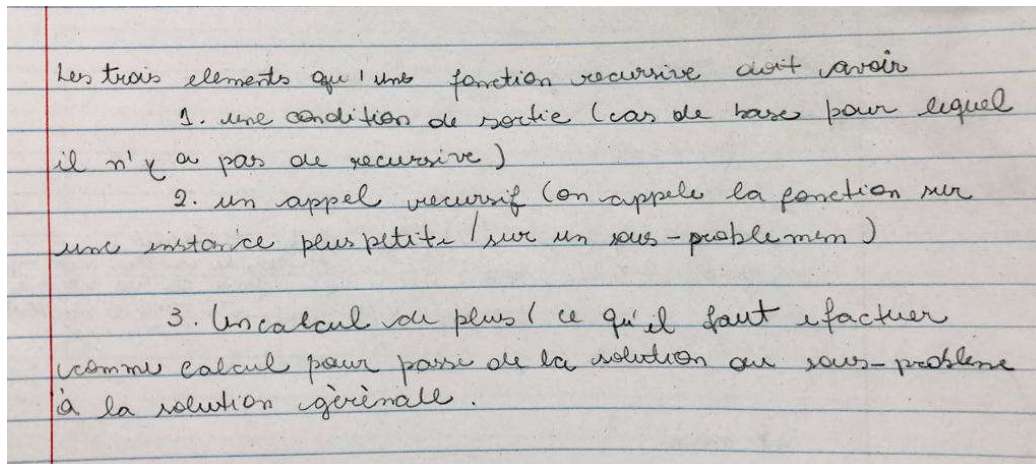 Les trois elements qu'une fonction recursive doit avoir
1. une condition de sortie (cas de base pour lequel
il n'y a pas de recursive)
2. un appel recursif (on appele la fonction sur
une instance plus petite / sur un sous-problemem)
3. Un calcul de plus (ce qu'il faut efactuer
comme calcul pour passe de la solution du sous-problème
à la solution gérènalle.